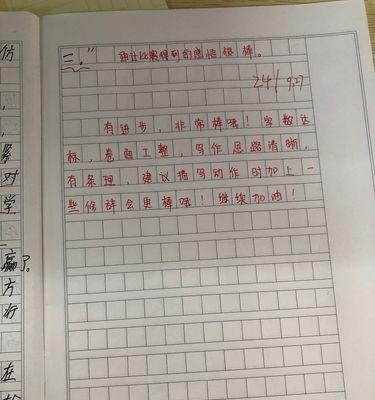 三."
通过比赛得到的感悟很棒。
24/ 9.27
有进步,非常棒哦!字数达
标,卷面工整,写作思路清晰,
有条理,建议描写动作时加上一
些修辞会更棒哦!继续加油!
仿
,
紧
对
学
赢了。
方
行
在